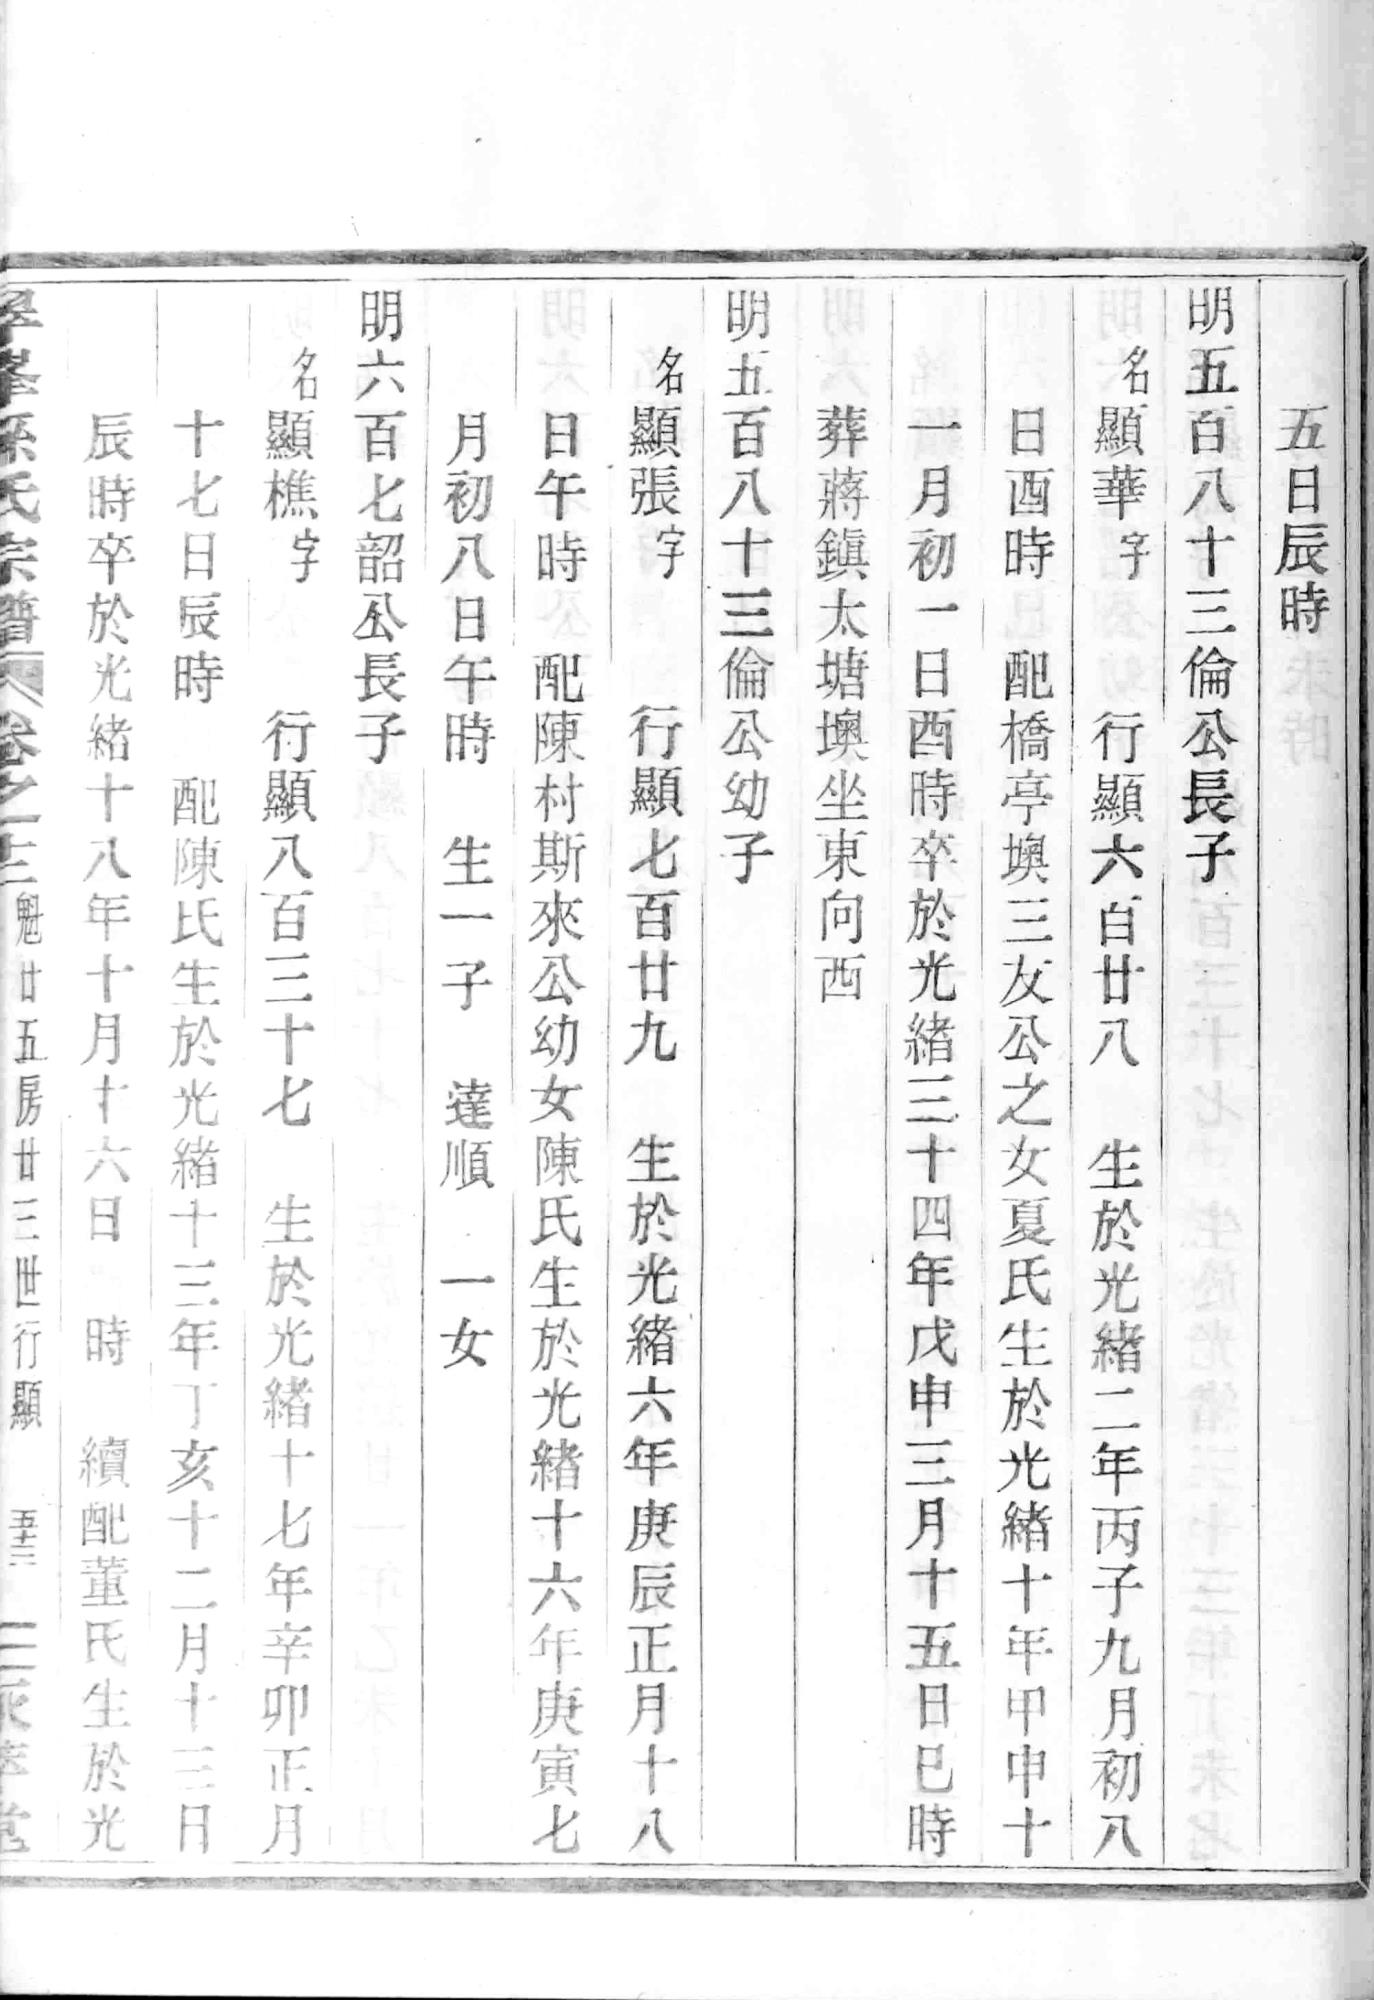 五日辰時
明五百八十三倫公長子
名顯華字 行顯六百廿八 生於光緒二年丙子九月初八
日酉時 配橋亭墺三友公之女夏氏生於光緒十年甲申十
一月初一日酉時卒於光緒三十四年戊申三月十五日巳時
葬蔣鎮太塘墺坐東向西
明五百八十三倫公幼子
名顯張字 行顯七百廿九 生於光緒六年庚辰正月十八
日午時 配陳村斯來公幼女陳氏生於光緒十六年庚寅七
月初八日午時 生一子 達順 一女
明六百七韶公長子
名顯樵字 行顯八百三十七 生於光緒十七年辛卯正月
十七日辰時 配陳氏生於光緒十三年丁亥十二月十三日
辰時卒於光緒十八年十月十六日 時 續配董氏生於光
孫氏宗譜 卷之 魁廿五房廿三世行顯 五十三 堂